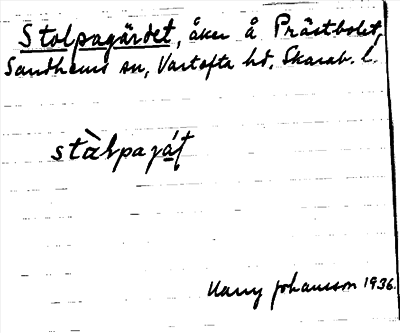 Stolpagärdet, åker å Prästbolet,
Sandhems sn, Vartofta hd, Skarab. l.
Harry Johansson 1936.